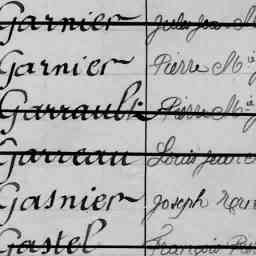 Garnier Jules Jean M
Garnier Pierre M
Garrault Pierre M
Garreau Louis Jean
Gasnier Joseph
Gastel François